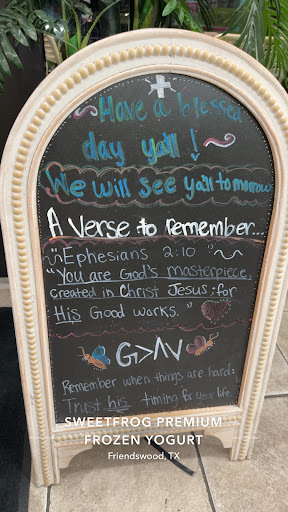 Have a blessed
day yall!
We will see yall tomorrow
A verse to remember...
"Ephesians 2:10"
"You are God's masterpiece,
created in Christ Jesus for
His Good works."
G>ΛV
Remember when things are hard:
Trust his timing for your life.
SWEETFROG PREMIUM
FROZEN YOGURT
Friendswood, TX